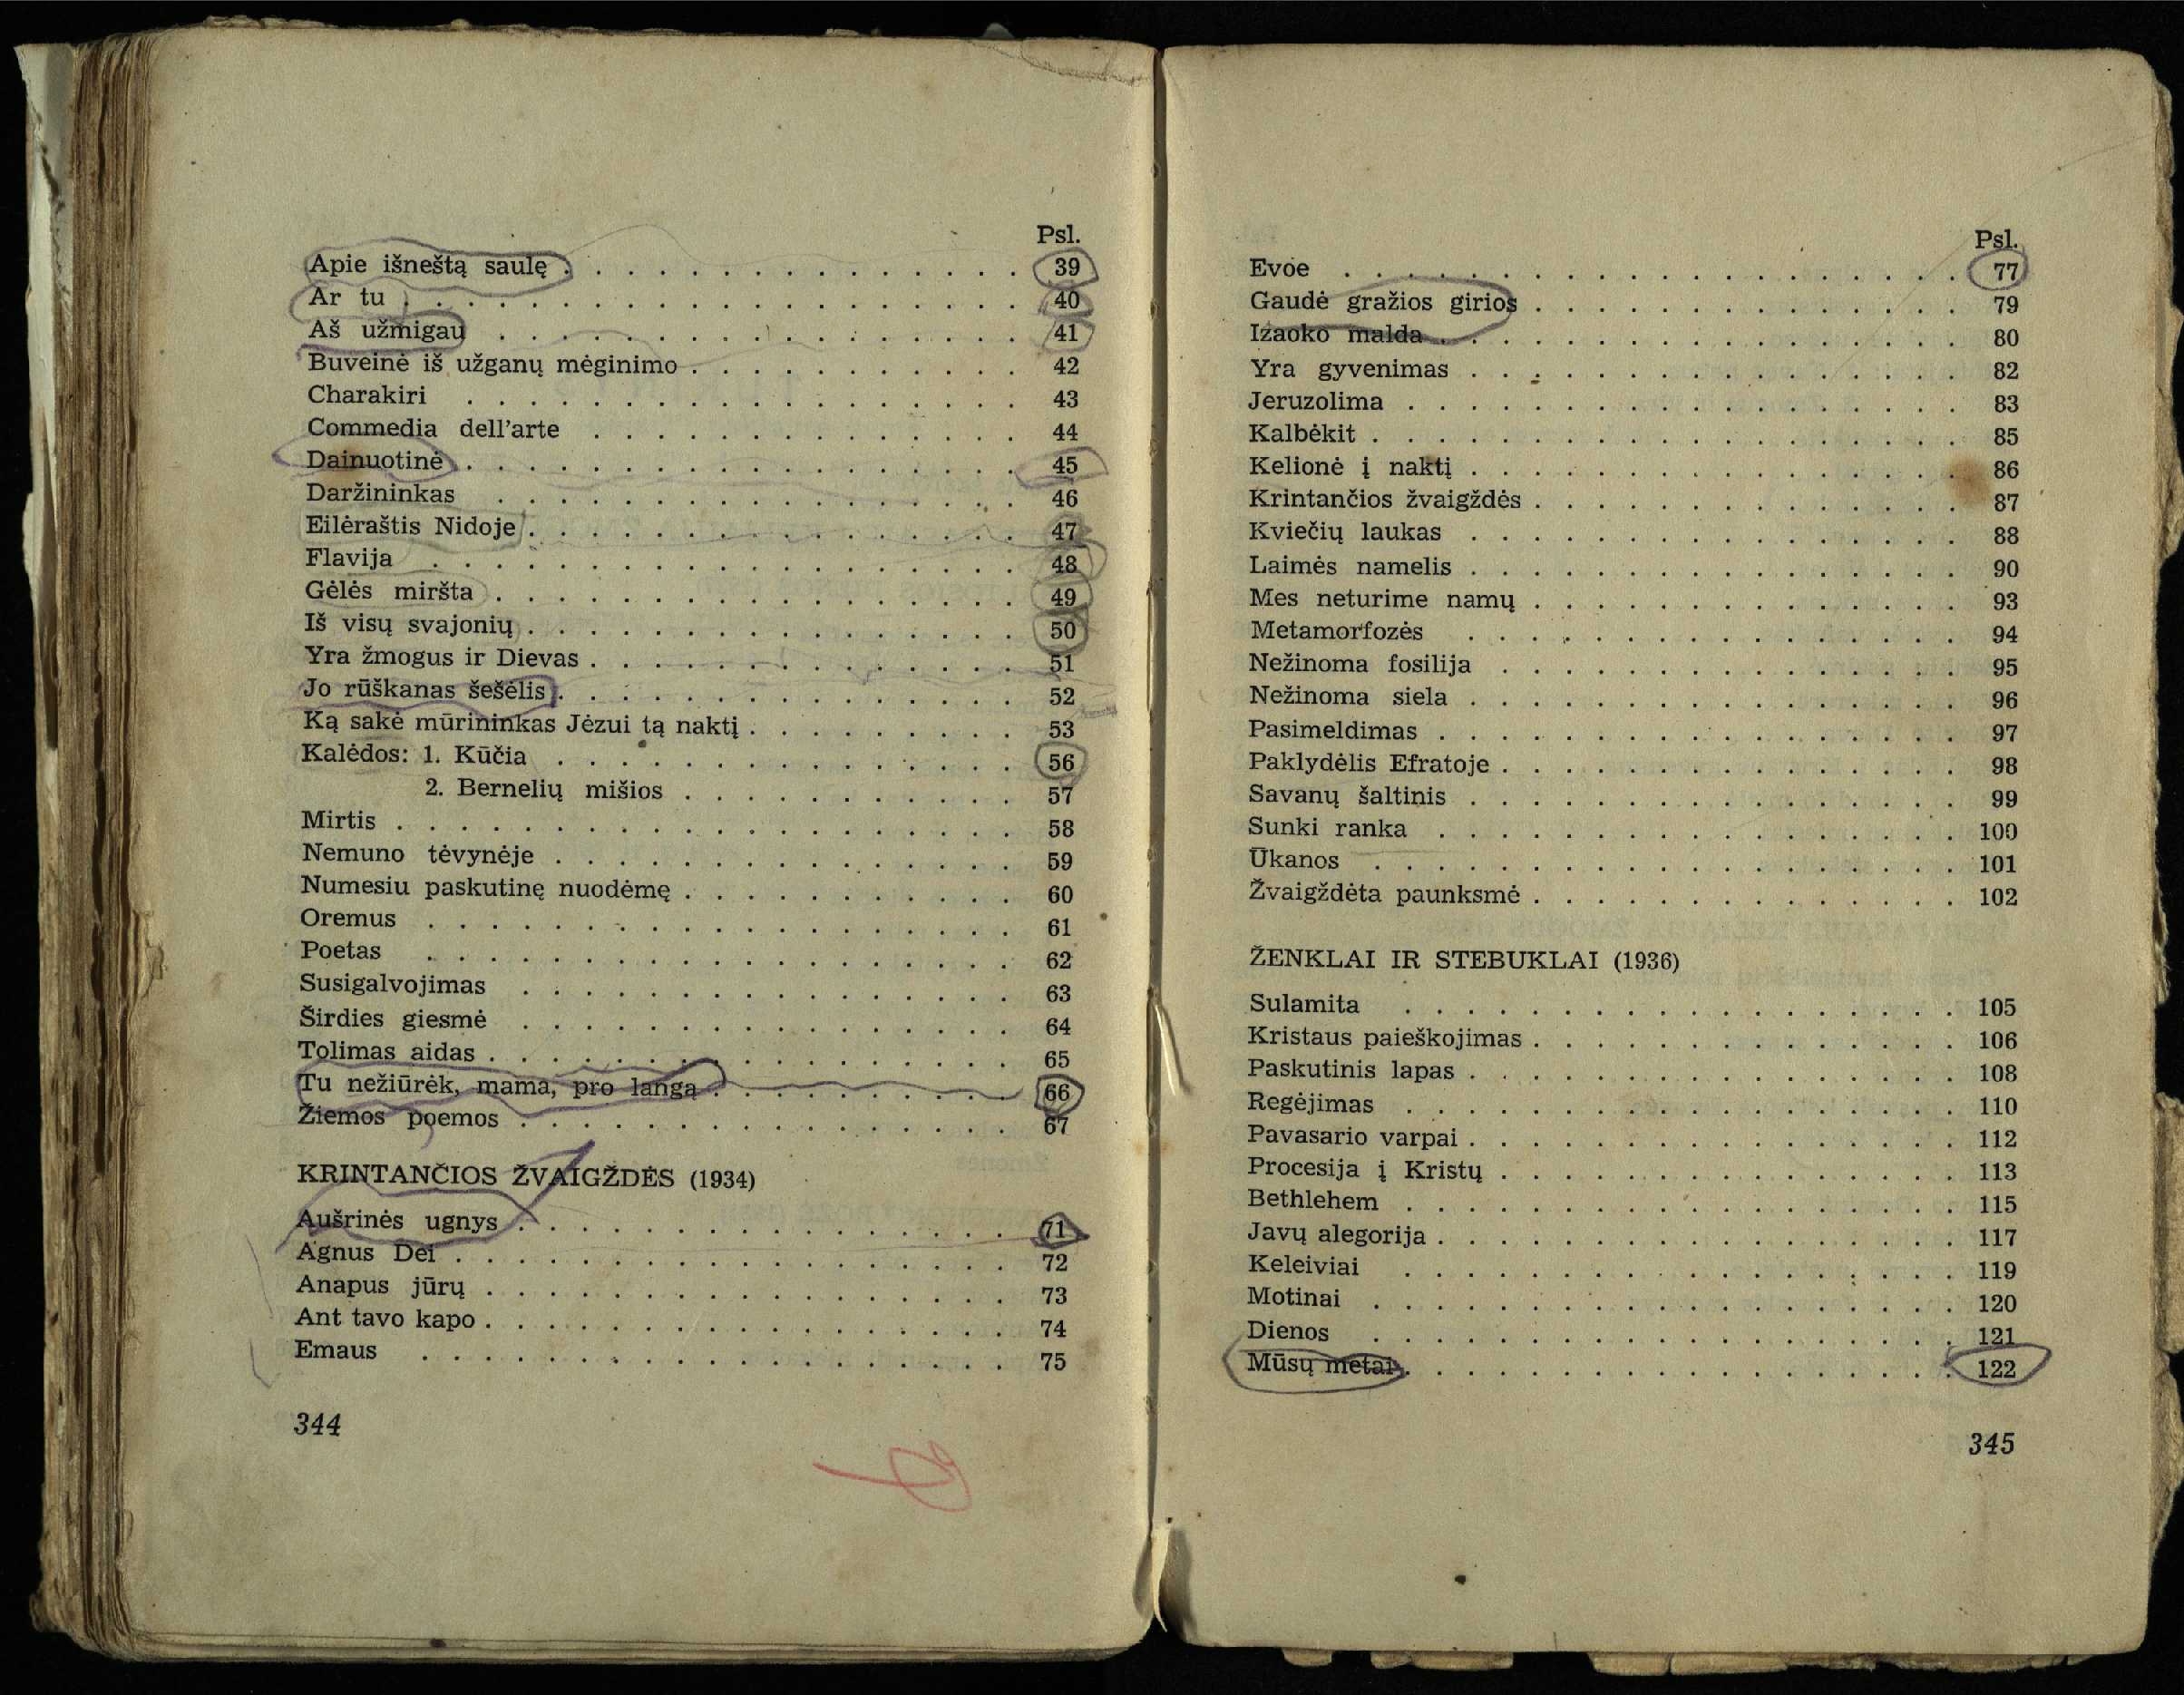 Psl.
Apie išneštą saulę . . . . . . . . . . . . . . . 39
Ar tu . . . . . . . . . . . . . . . . . . . . 40
Aš užmigau . . . . . . . . . . . . . . . . . 41
Buveinė iš užganų mėginimo . . . . . . . . . . . 42
Charakiri . . . . . . . . . . . . . . . . . . 43
Commedia dell’arte . . . . . . . . . . . . . . 44
Dainuotinė . . . . . . . . . . . . . . . . . . 45
Daržininkas . . . . . . . . . . . . . . . . . 46
Eilėraštis Nidoje . . . . . . . . . . . . . . . . 47
Flavija . . . . . . . . . . . . . . . . . . . 48
Gėlės miršta . . . . . . . . . . . . . . . . . 49
Iš visų svajonių . . . . . . . . . . . . . . . . 50
Yra žmogus ir Dievas . . . . . . . . . . . . . . 51
Jo rūškanas šešėlis . . . . . . . . . . . . . . . 52
Ką sakė mūrininkas Jėzui tą naktį . . . . . . . . . 53
Kalėdos: 1. Kūčia . . . . . . . . . . . . . . . 56
2. Bernelių mišios . . . . . . . . . . . 57
Mirtis . . . . . . . . . . . . . . . . . . . . 58
Nemuno tėvynėje . . . . . . . . . . . . . . . 59
Numesiu paskutinę nuodėmę . . . . . . . . . . . 60
Oremus . . . . . . . . . . . . . . . . . . . 61
Poetas . . . . . . . . . . . . . . . . . . . 62
Susigalvojimas . . . . . . . . . . . . . . . . 63
Širdies giesmė . . . . . . . . . . . . . . . . 64
Tolimas aidas . . . . . . . . . . . . . . . . . 65
Tu nežiūrėk, mama, pro langą . . . . . . . . . . 66
Žiemos poemos . . . . . . . . . . . . . . . . 67
KRINTANČIOS ŽVAIGŽDĖS (1934)
Aušrinės ugnys . . . . . . . . . . . . . . . . 71
Agnus Dei . . . . . . . . . . . . . . . . . . 72
Anapus jūrų . . . . . . . . . . . . . . . . . 73
Ant tavo kapo . . . . . . . . . . . . . . . . . 74
Emaus . . . . . . . . . . . . . . . . . . . 75
344
Psl.
Evoe . . . . . . . . . . . . . . . . . . . . 77
Gaudė gražios girios . . . . . . . . . . . . . . 79
Izaoko malda . . . . . . . . . . . . . . . . . 80
Yra gyvenimas . . . . . . . . . . . . . . . . 82
Jeruzolima . . . . . . . . . . . . . . . . . . 83
Kalbėkit . . . . . . . . . . . . . . . . . . . 85
Kelionė į naktį . . . . . . . . . . . . . . . . 86
Krintančios žvaigždės . . . . . . . . . . . . . . 87
Kviečių laukas . . . . . . . . . . . . . . . . 88
Laimės namelis . . . . . . . . . . . . . . . . 90
Mes neturime namų . . . . . . . . . . . . . . 93
Metamorfozės . . . . . . . . . . . . . . . . 94
Nežinoma fosilija . . . . . . . . . . . . . . . 95
Nežinoma siela . . . . . . . . . . . . . . . . 96
Pasimeldimas . . . . . . . . . . . . . . . . . 97
Paklydėlis Efratoje . . . . . . . . . . . . . . . 98
Savanų šaltinis . . . . . . . . . . . . . . . . 99
Sunki ranka . . . . . . . . . . . . . . . . . 100
Ūkanos . . . . . . . . . . . . . . . . . . . 101
Žvaigždėta paunksmė . . . . . . . . . . . . . . 102
ŽENKLAI IR STEBUKLAI (1936)
Sulamita . . . . . . . . . . . . . . . . . . 105
Kristaus paieškojimas . . . . . . . . . . . . . . 106
Paskutinis lapas . . . . . . . . . . . . . . . . 108
Regėjimas . . . . . . . . . . . . . . . . . . 110
Pavasario varpai . . . . . . . . . . . . . . . . 112
Procesija į Kristų . . . . . . . . . . . . . . . 113
Bethlehem . . . . . . . . . . . . . . . . . . 115
Javų alegorija . . . . . . . . . . . . . . . . . 117
Keleiviai . . . . . . . . . . . . . . . . . . 119
Motinai . . . . . . . . . . . . . . . . . . . 120
Dienos . . . . . . . . . . . . . . . . . . . 121
Mūsų metai . . . . . . . . . . . . . . . . . . 122
345